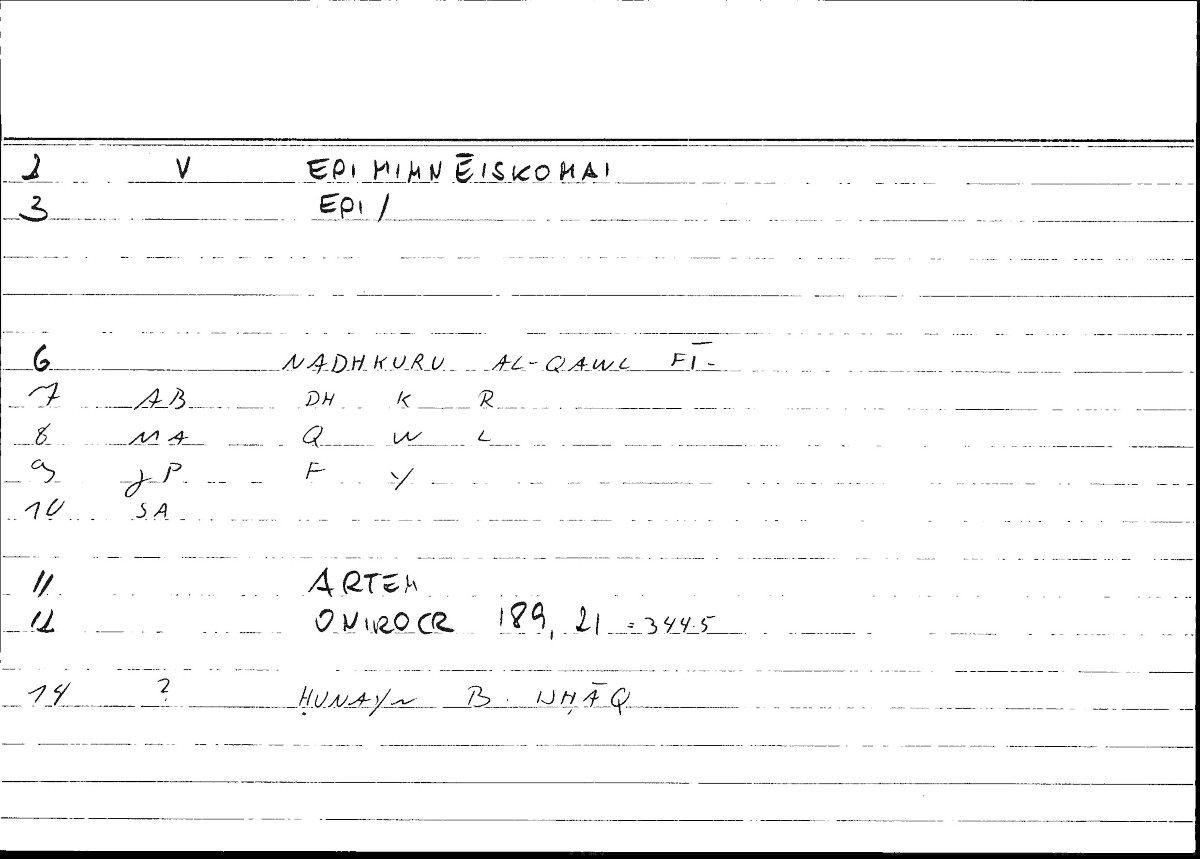 2 V EPIMIMNĒISKOMAI
3 EPI/
6 NADHKURU AL-QAWL FĪ-
7 AB DH K R
8 MA Q W L
9 JP F Y
10 SA
11 ARTEM
12 ONIROCR 189, 21 = 344.5
14 ? ḤUNAYN B. ISḤĀQ